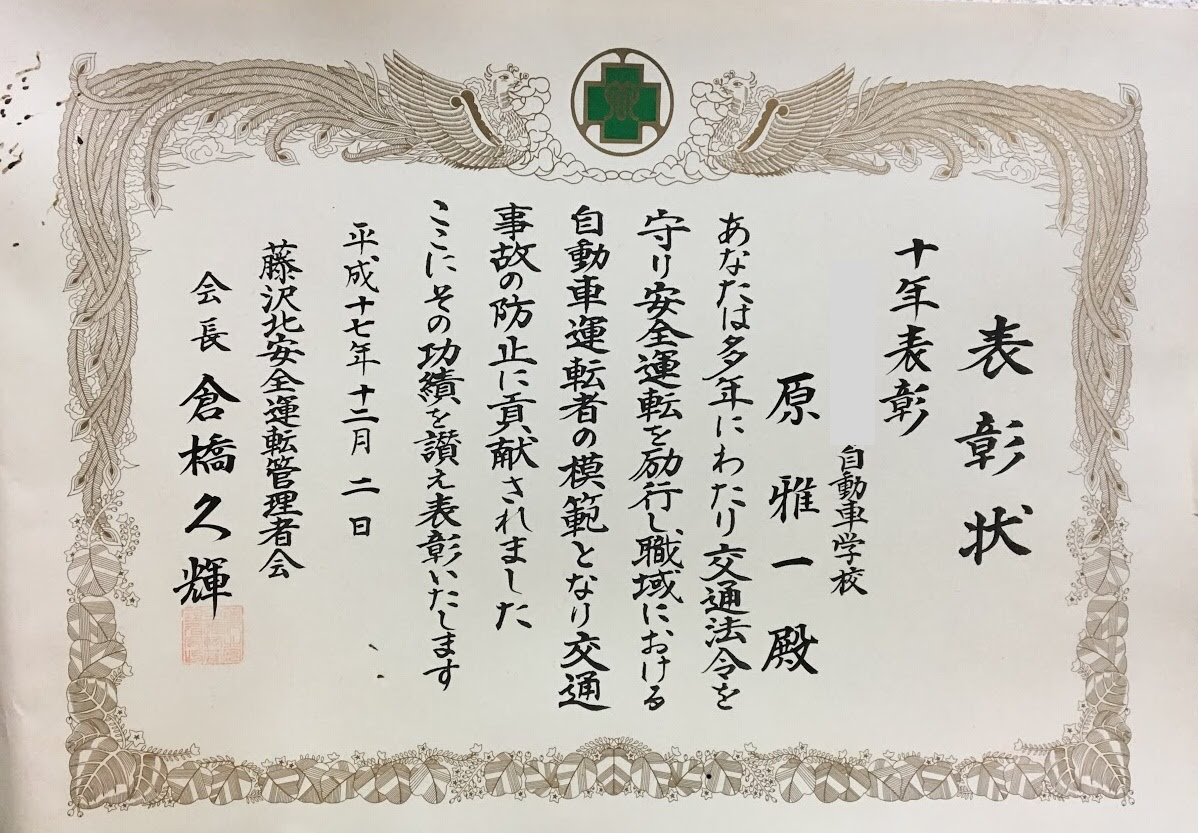 表彰状
十年表彰
自動車学校
原雅一殿
あなたは多年にわたり交通法令を
守り安全運転を励行し職域における
自動車運転者の模範となり交通
事故の防止に貢献されました
ここにその功績を讃え表彰いたします
平成十七年十二月二日
藤沢北安全運転管理者会
会長倉橋久輝